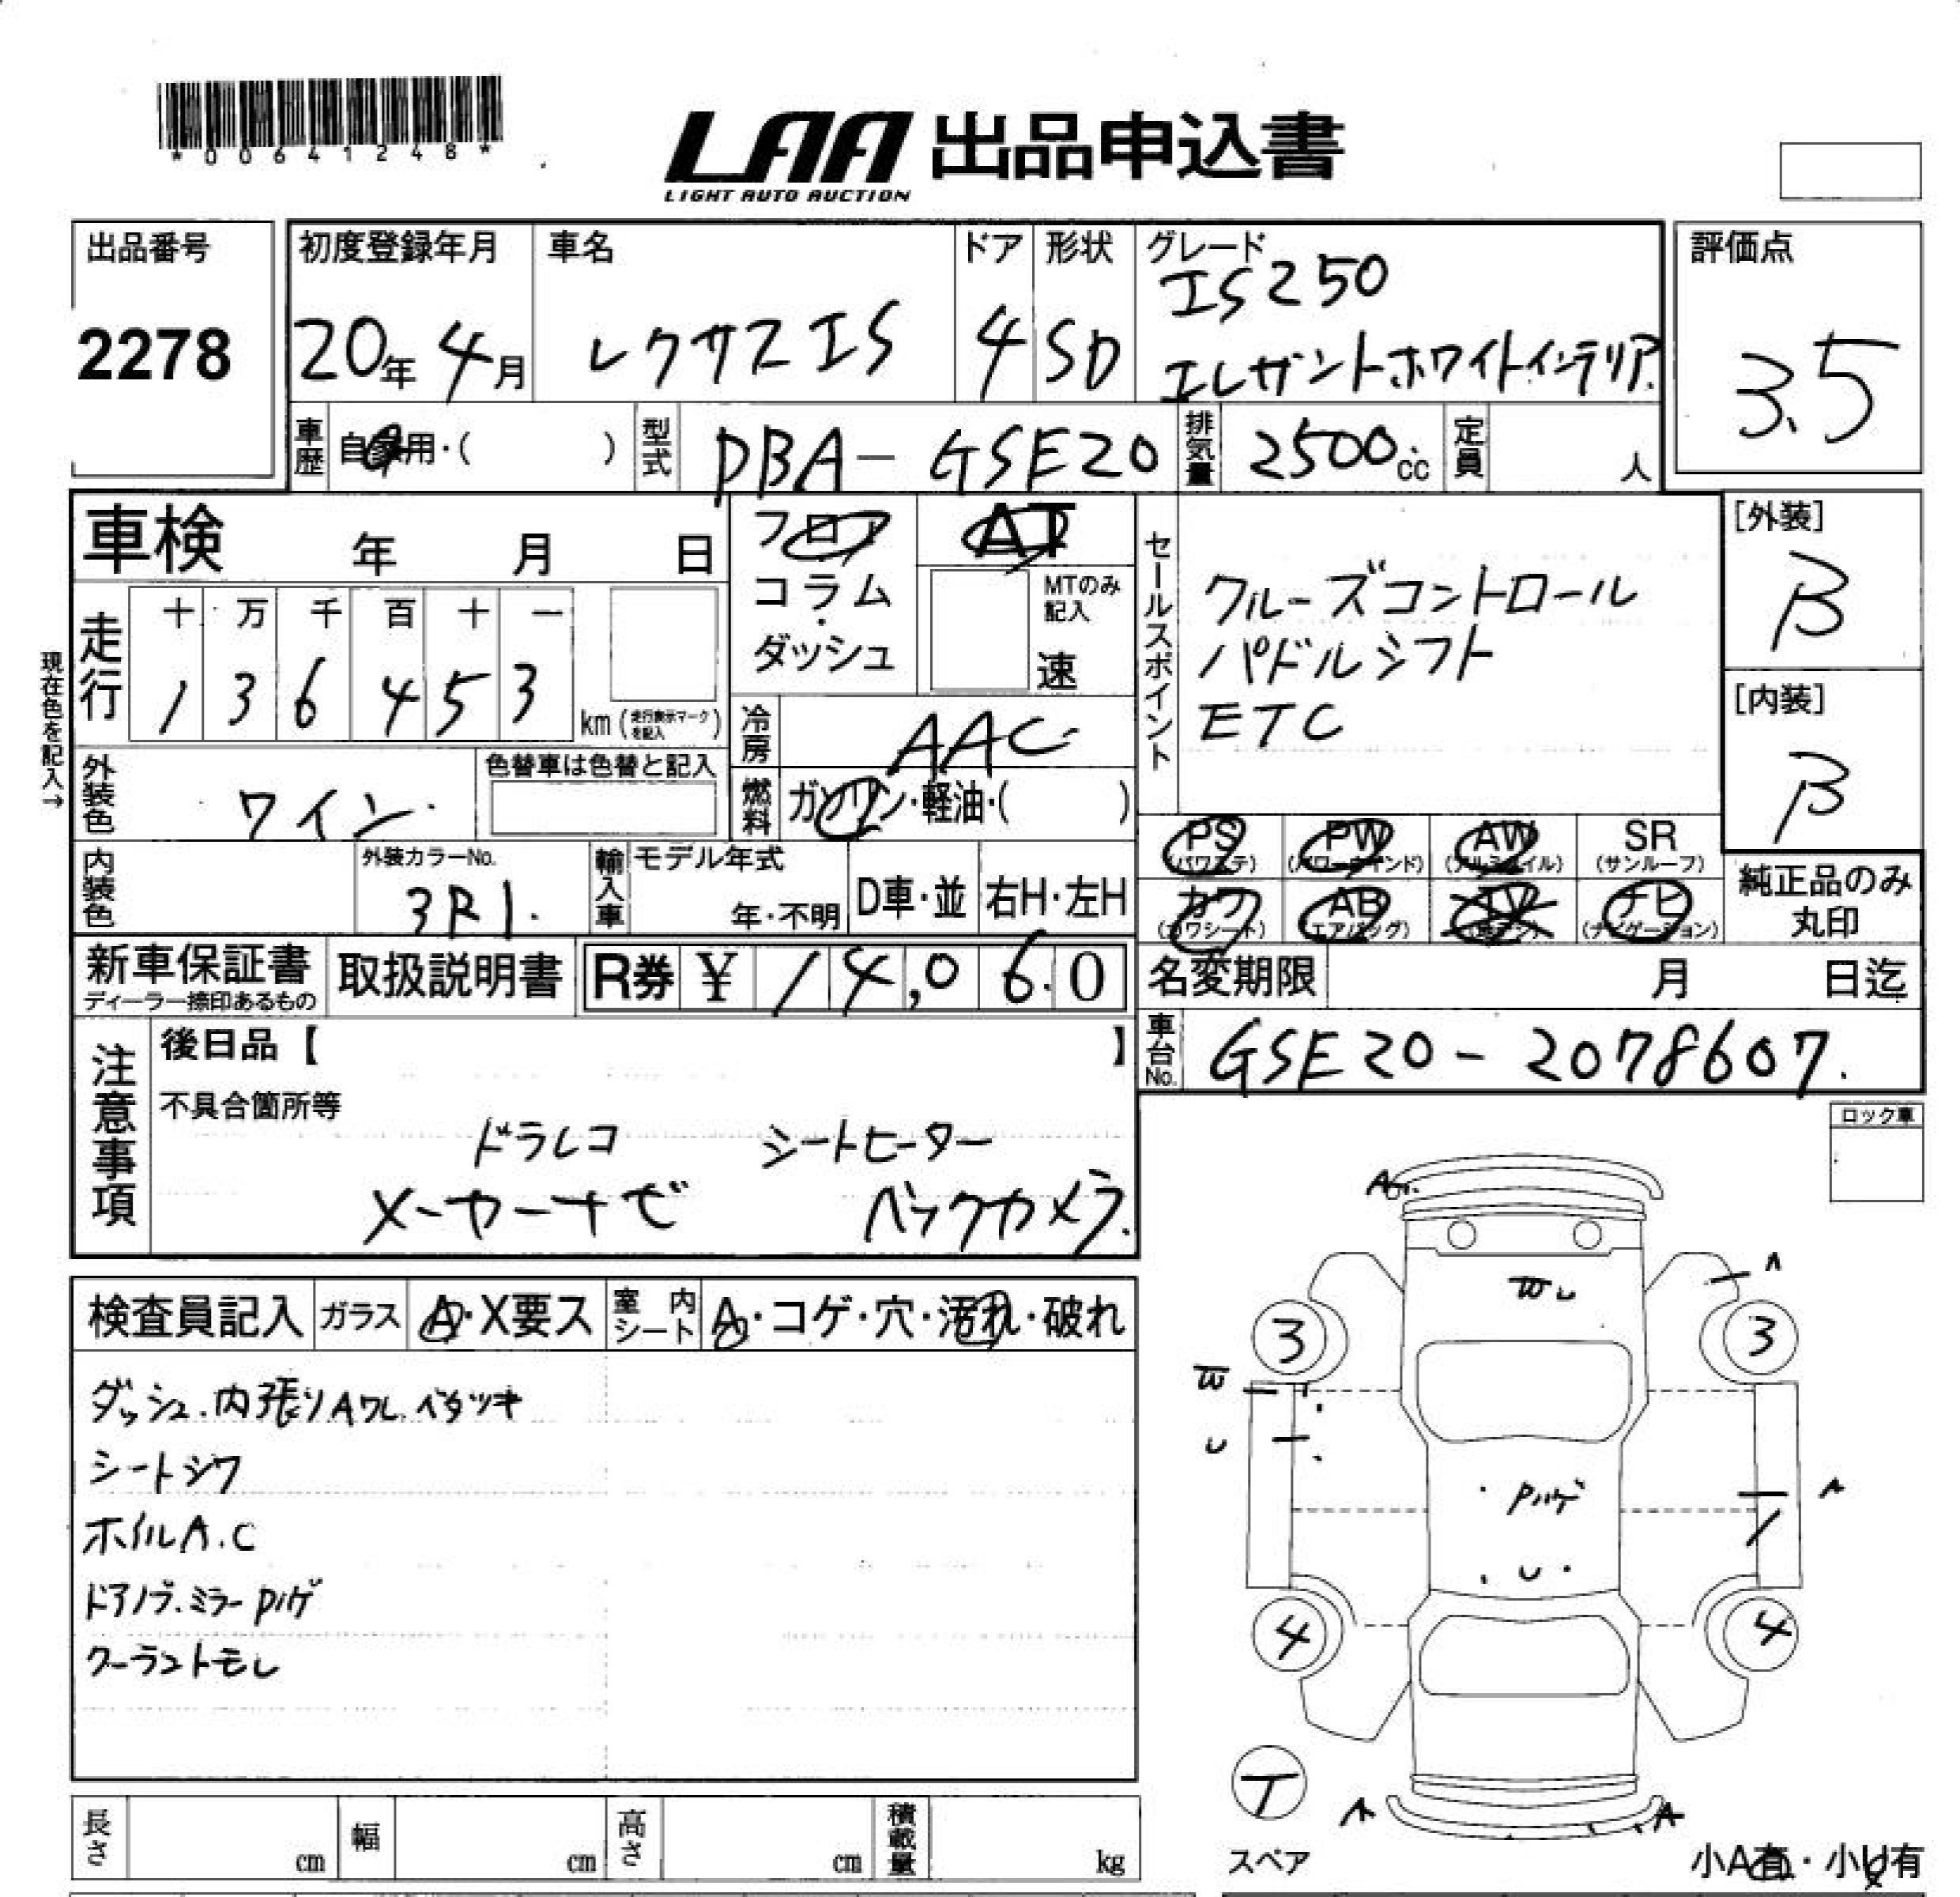 *00641248*
LAA 出品申込書
LIGHT AUTO AUCTION
出品番号
2278
初度登録年月
20年 4月
車名
レクサスIS
ドア
4
形状
SD
グレード
IS250
エレガントホワイトインテリア
評価点
3.5
車歴
自家用・( )
型式
DBA-GSE20
排気量
2500cc
定員
人
車検 年 月 日
フロア
コラム・
ダッシュ
AT
MTのみ
記入
速
セールスポイント
クルーズコントロール
パドルシフト
ETC
[外装]
B
[内装]
B
現在色を記入→
走行
十 万 千 百 十 一
1 3 6 4 5 3
km (走行表示マークを記入)
冷房
AAC
外装色
ワイン
色替車は色替と記入
燃料
ガソリン・軽油・( )
PS
(パワステ)
PW
(パワーウインド)
AW
(アルミホイル)
SR
(サンルーフ)
カワ
(カワシート)
AB
(エアバッグ)
TV
ナビ
(ナビゲーション)
純正品のみ
丸印
内装色
外装カラーNo.
3R1.
輸入車
モデル年式
年・不明
D車・並
右H・左H
新車保証書
ディーラー捺印あるもの
取扱説明書
R券 ¥ 14,060
名変期限 月 日迄
車台No.
GSE20-2078607.
注意事項
後日品【 】
不具合箇所等
ドラレコ シートヒーター
メーカーナビ バックカメラ.
ロック車
検査員記入
ガラス
A・X要ス
室内シート
A・コゲ・穴・汚れ・破れ
ダッシュ.内張りAワレ.ベタツキ
シートシワ
ホイルA.C
ドアノブ.ミラーPハゲ
クーラントモレ
A
W U
A
3
3
W
U
Pハゲ
A
U
4
4
T
スペア
A
A
小A有・小U有
長さ cm
幅 cm
高さ cm
積載量 kg